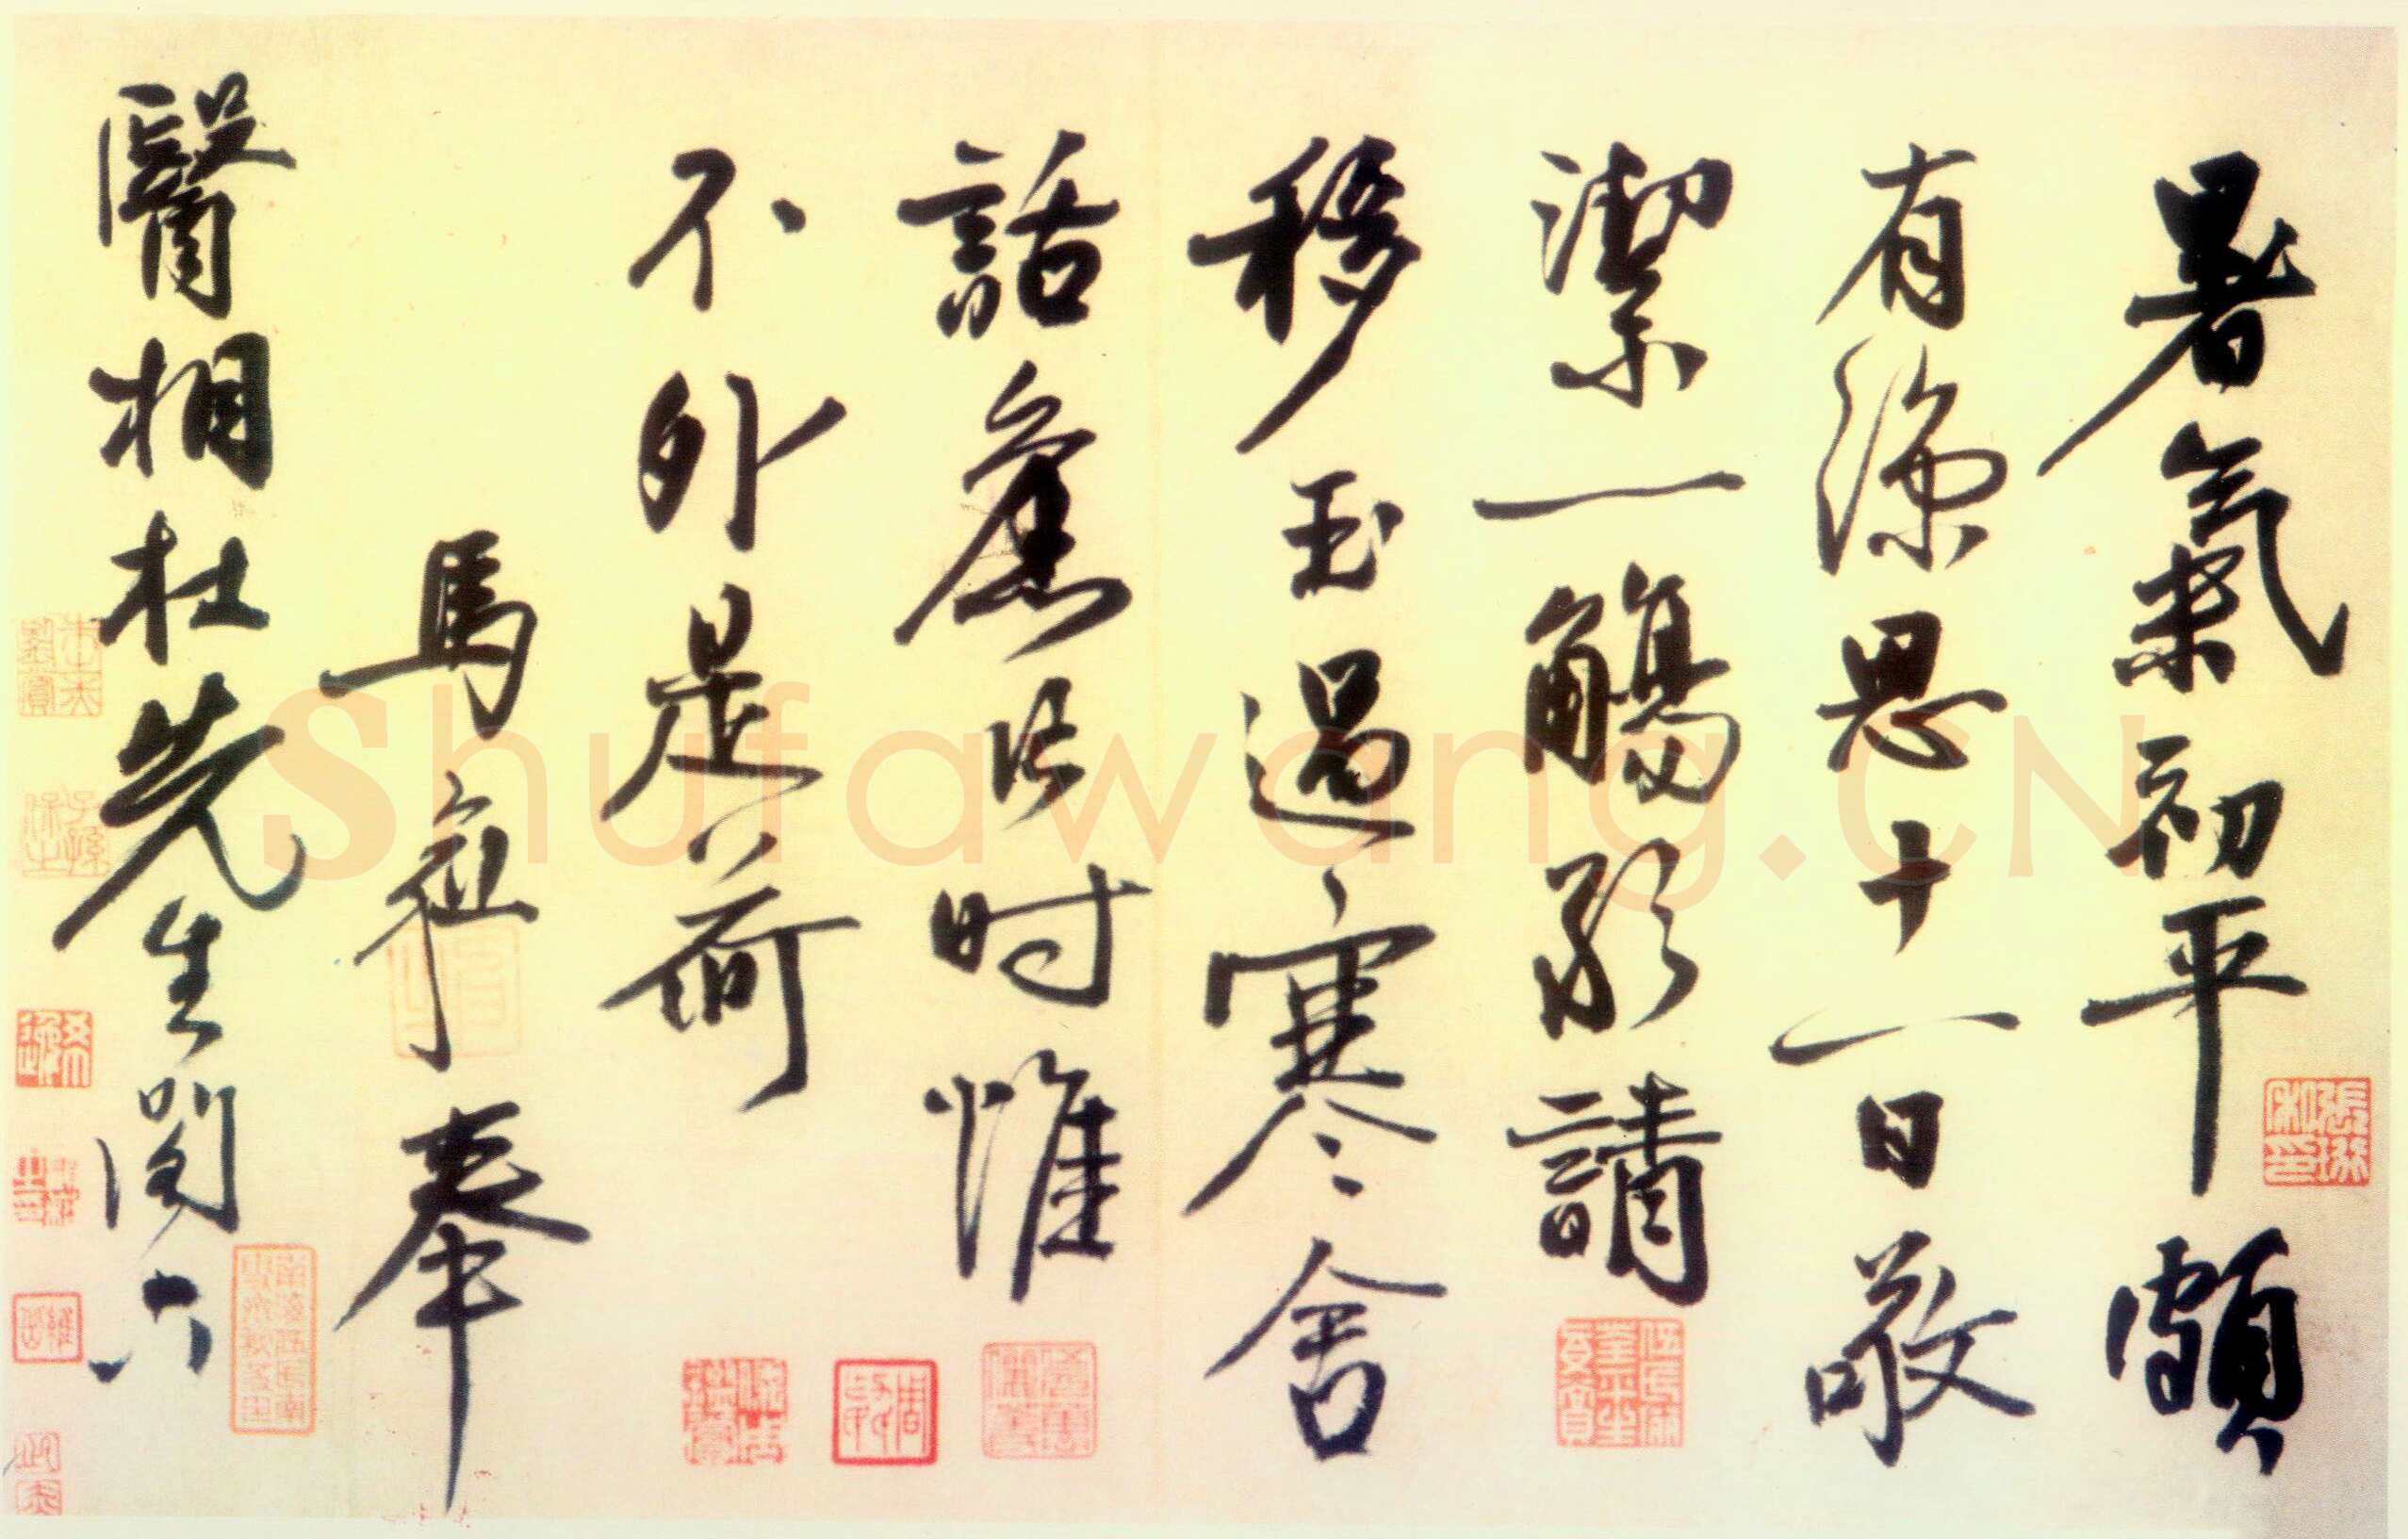 暑氣初平頗
有涼思十一日敬
潔一觴敢請
移玉過寒舍
話舊片時惟
不外是荷
馬祉奉
醫相杜先生閣下
Shufawang.CN